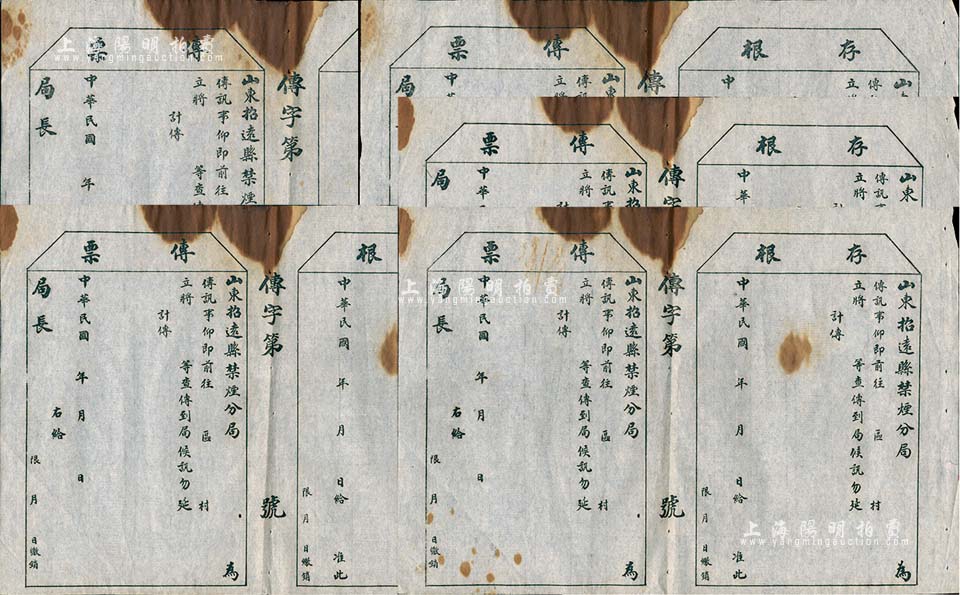 上海陽明拍賣
www.yangmingauction.com
傳票
山東招遠縣禁煙
傳訊事仰即前往
立將 等查
計傳
中華民國 年
局長
傳字第
存根
山
傳
立
中
傳票
山
傳
立將
中
局
傳
存根
山東
傳訊
立將
計
中華
傳票
山東招
傳訊事
立將
計
中華
局
傳字
存根
山東招遠縣禁煙分局 為
傳訊事仰即前往 區 村
立將 等查傳到局候訊勿延
計傳
中華民國 年 月 日給 准此
限 月 日繳銷
傳字第 號
傳票
山東招遠縣禁煙分局 為
傳訊事仰即前往 區 村
立將 等查傳到局候訊勿延
計傳
中華民國 年 月 日
右給
局長
限 月 日繳銷
上海陽明拍賣
www.yangmingauction.com
根
中華民國 年 月 日給 准此
限 月
傳字第 號
傳票
山東招遠縣禁煙分局 為
傳訊事仰即前往 區 村
立將 等查傳到局候訊勿延
計傳
中華民國 年 月 日
右給
局長
限 月 日繳銷
上海陽明拍賣
www.yangmingauction.com